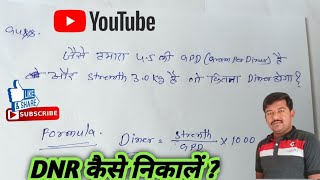 YouTube
Ques.
जैसे हमारा 4.5 की GPD (Gram Per Dinier) है
और strength 3.0 kg है तो कितना Dinier होगा ?
LIKE & SHARE
SUBSCRIBE
Formula.
Dinier = strenth / GPD × 1000
DNR कैसे निकालें ?